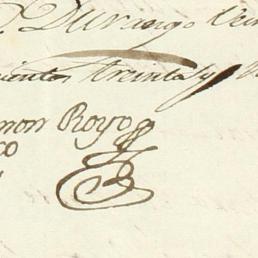 Durango Vein
cientos treinta y
mon Royo
co